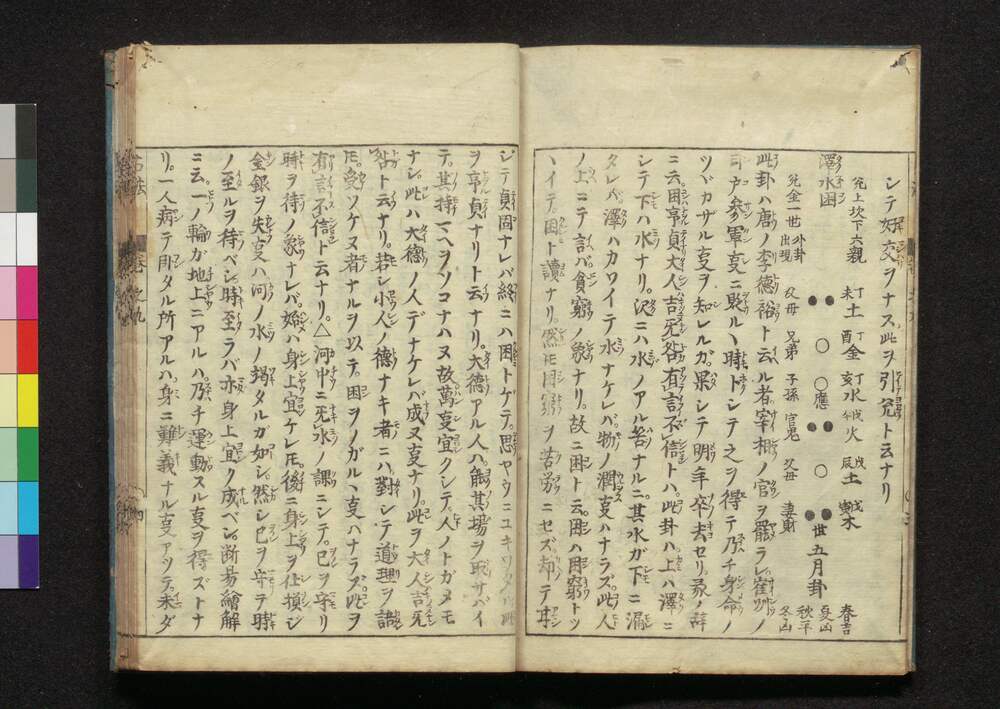 シテ好交ヲナス此ヲ引兌ト云ナリ
兌上坎下六親
澤水困
兌金一世 外卦出現
丁未土 丁酉金 丁亥水 戊午火 戊辰土 戊寅木
應 世
父母 兄弟 子孫 官鬼 父母 妻財
五月卦
春吉 夏凶 秋平 冬凶
此卦ハ唐ノ李德裕ト云ル者宰相ノ官ヲ罷ラレ崖州ノ
司戸參軍叓ニ貶ル丶時トシテ之ヲ得テ乃チ身命ノ
ツヾカサル叓ヲ知レルガ果シテ明年卒去セリ彖ノ辞
ニ云困亨貞大人吉无咎有言不信トハ此卦ハ上ハ澤ニ
シテ下ハ水ナリ。沢ニハ水ノアル筈ナルニ。其水ガ下ニ漏
タレバ。澤ハカワイテ水ナケレバ。物ノ潤叓ハナラズ。此人
ノ上ニテ言バ貧窮ノ象ナリ。故ニ困ト云。困ハ困窮トツ
ヾイテ。困ト讀ナリ。然ㇾ𪜈困窮ヲ苦労ニセズ。却テ耳
シテ貞固ナレバ終ニハ困トケテ。思ヤウニユキワタル所
ヲ亨貞ナリト云ナリ。大德アル人ハ能其場ヲ取サバイ
テ。其持マヘヲソコナハヌ故萬叓宜クシテ。人ノトガメモ
ナシ。此ハ大德ノ人デナケレバ成ヌ叓ナリ。此ヲ大人吉无
咎ト云ナリ。若シ小人ノ德ナキ者ニハ。對シテ道理ヲ講
𪜈。受ツケヌ者ナルヲ以テ。困ヲノガルヽ叓ハナラズ。此ヲ
有言不信ト云ナリ。△河中ニ无水ノ課ニシテ。已ヲ守リ
時ヲ待ノ象ナレバ。始ハ身上宜ケレ𪜈。後ニ身上ヲ仕損ジ
金銀ヲ失叓ハ河ノ水ノ竭タルガ如シ。然シ已ヲ守テ時
ノ至ルヲ待ベシ。時至ラバ亦身上宜ク成ベシ。断易繪解
ニ云。一ノ輪が地上ニアルハ。乃チ運動スル叓ヲ得ズトナ
リ。一人病テ臥タル所アルハ。身ニ難義ナル叓アツテ。未ダ